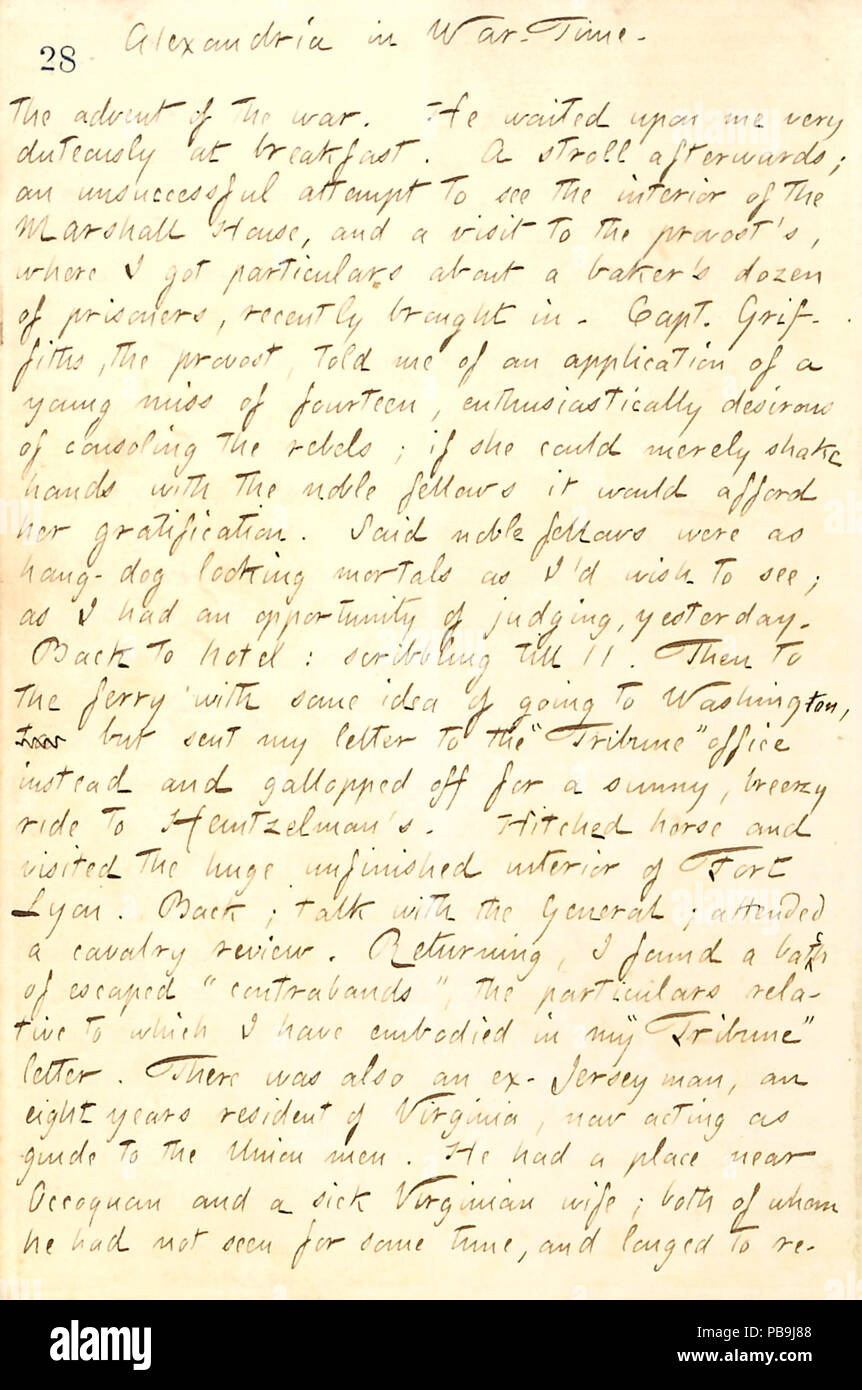 Alexandria in War-Time.
28
the advent of the war. He waited upon me very
duteously at breakfast. A stroll afterwards;
an unsuccessful attempt to see the interior of the
Marshall House, and a visit to the provost's,
where I got particulars about a baker's dozen
of prisoners, recently brought in. Capt. Grif-
fiths, the provost, told me of an application of a
young miss of fourteen, enthusiastically desirous
of consoling the rebels; if she could merely shake
hands with the noble fellows it would afford
her gratification. Said noble fellows were as
hang-dog looking mortals as I'd wish to see;
as I had an opportunity of judging, yesterday.
Back to hotel: scribbling till 11. Then to
the ferry with some idea of going to Washington,
but sent my letter to the "Tribune" office
instead and gallopped off for a sunny, breezy
ride to Heintzelman's. Hitched horse and
visited the huge unfinished interior of Fort
Lyon. Back; talk with the General; attended
a cavalry review. Returning, I found a batch
of escaped "contrabands", the particulars rela-
tive to which I have embodied in my "Tribune"
letter. There was also an ex-Jerseyman, an
eight years resident of Virginia, now acting as
guide to the Union men. He had a place near
Occoquan and a sick Virginian wife; both of whom
he had not seen for some time, and longed to re-
alamy
Image ID: PB9J88
www.alamy.com